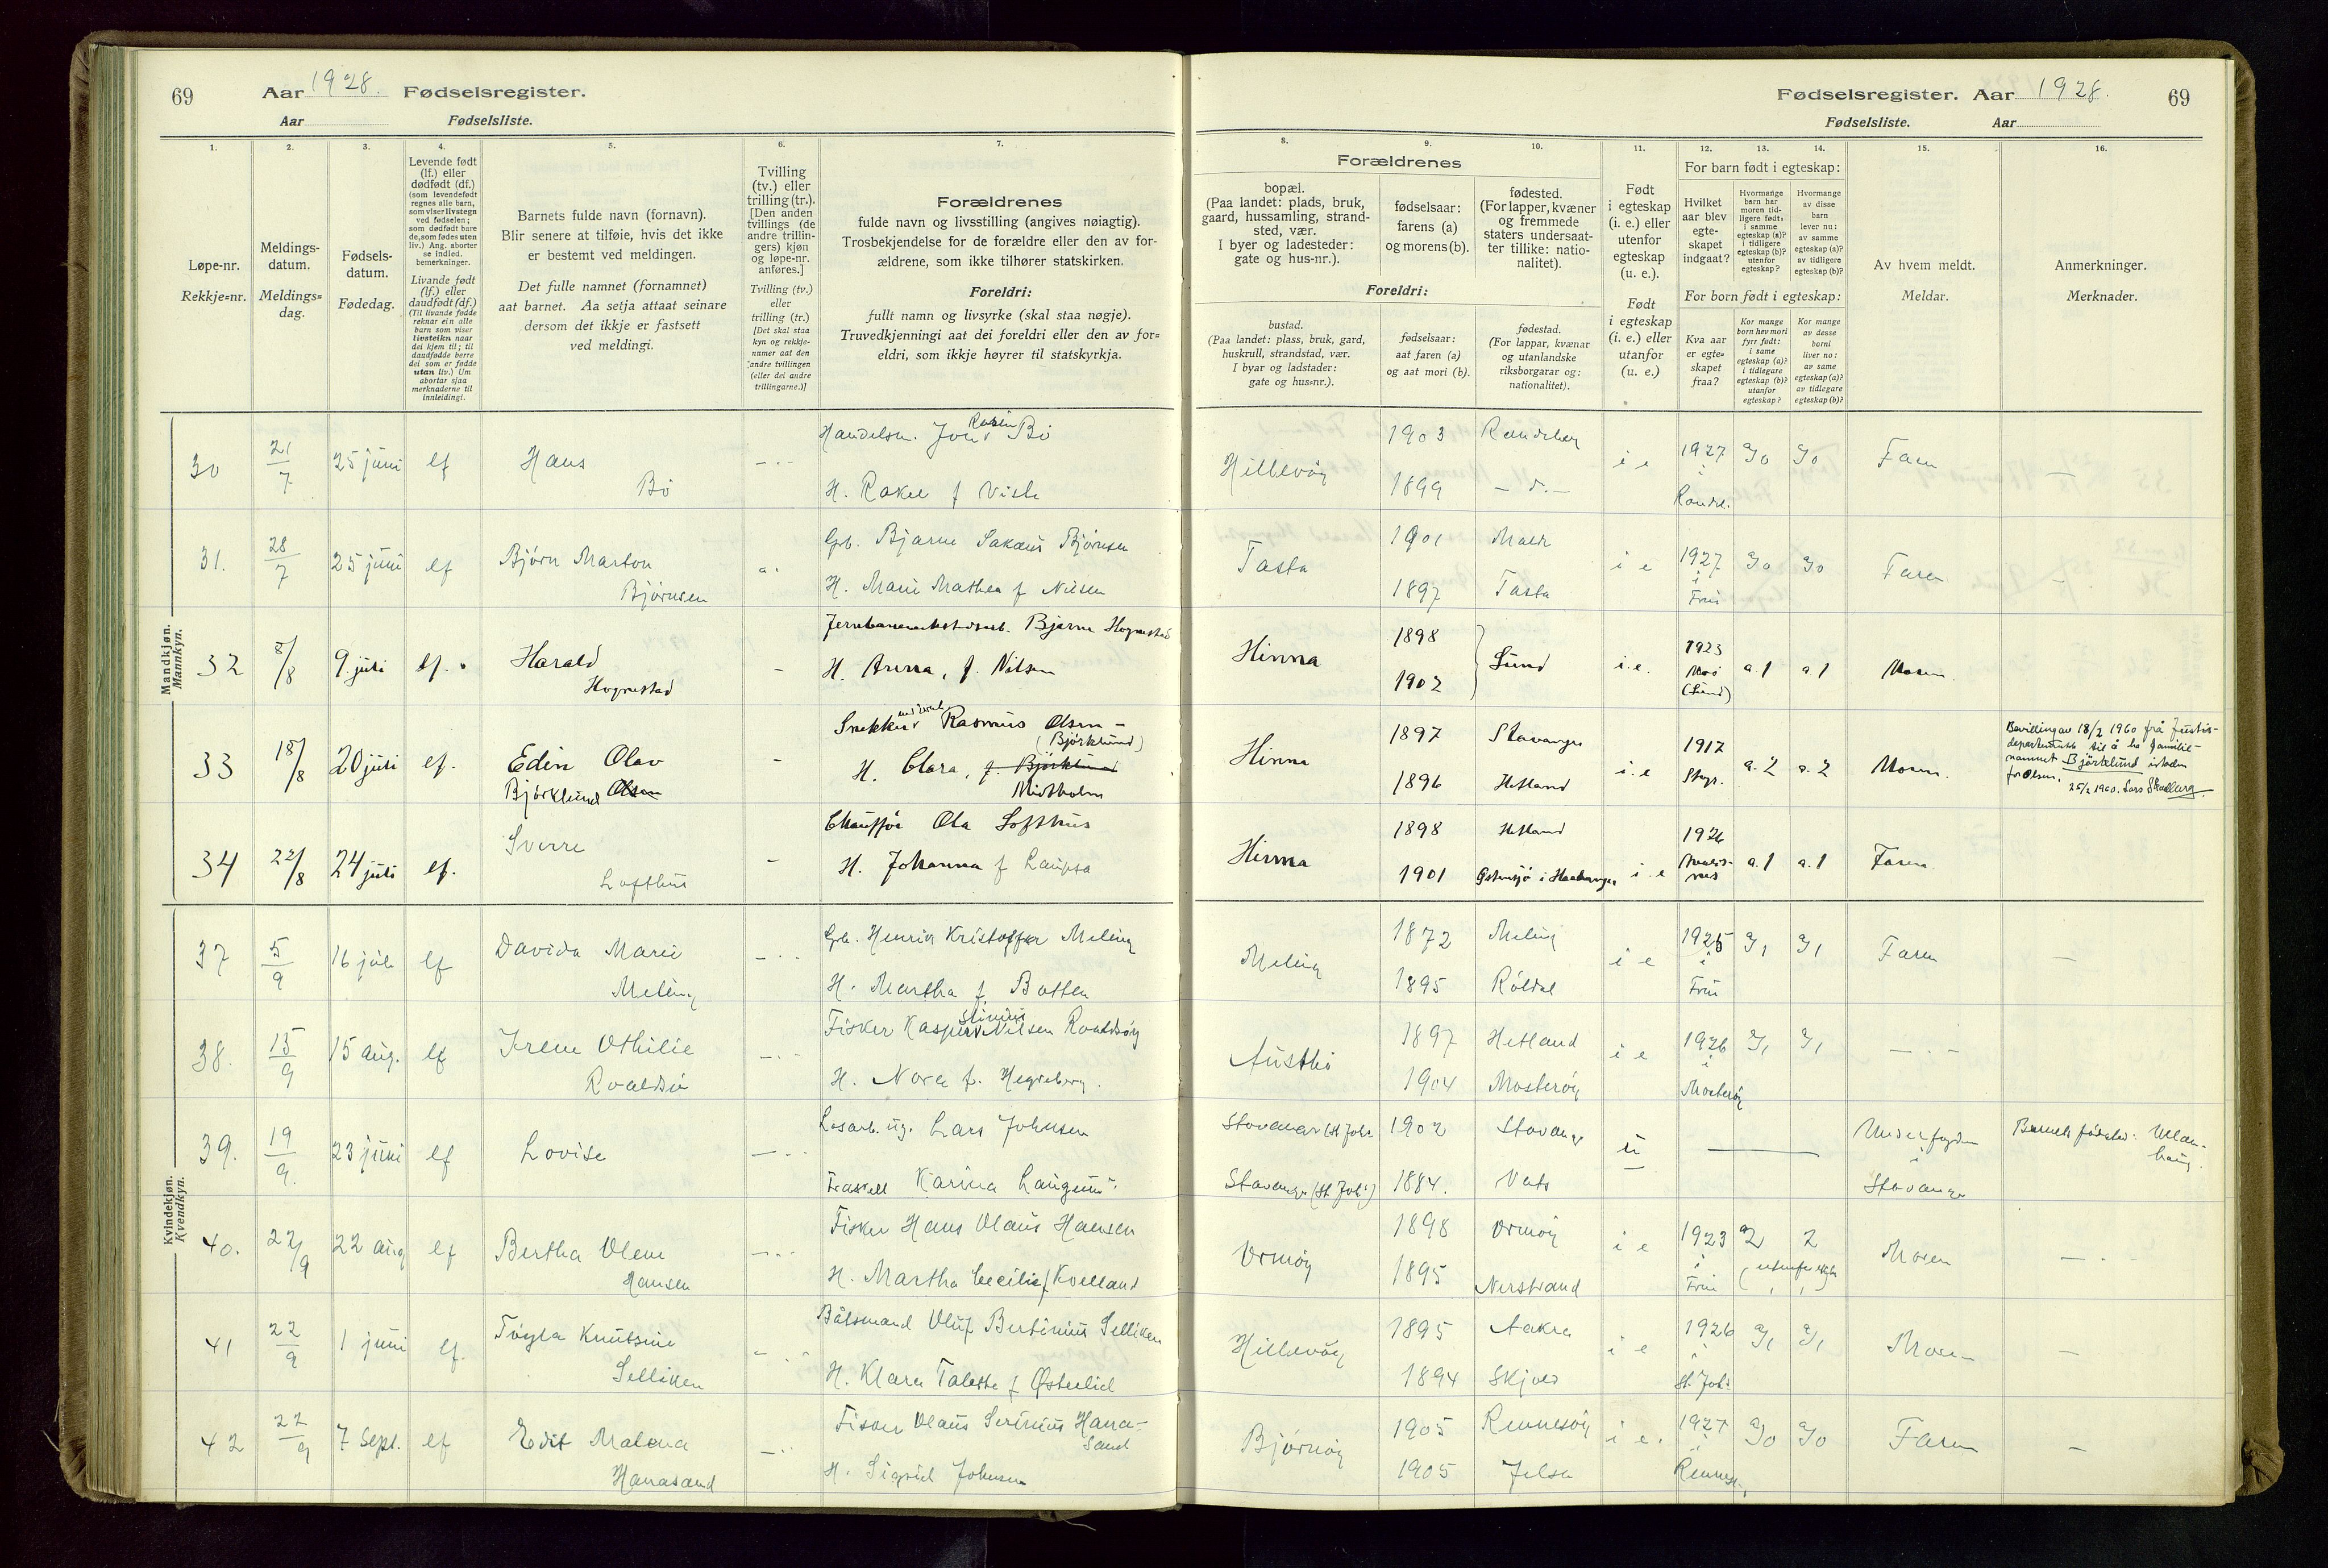 69
Aar 1928. Fødselsregister.
Aar Fødselsliste.
Fødselsregister. Aar 1928.
69
Fødselsliste. Aar
1.
Løpe-nr.
Rekkje=nr.
2.
Meldings-
datum.
Meldings=
dag.
3.
Fødsels-
datum.
Fødedag.
4.
Levende født
(lf.) eller
dødfødt (df.)
(som levendefødt
regnes alle barn,
som viser livstegn
ved fødselen;
som dødfødt bare
de, som fødes uten
liv.) Ang. aborter
se indled.
bemerkninger.
Livande født
(lf.) eller
daudfødt (df.)
(Til livande fødde
reknar ein alle
barn som viser
livsteikn naar
dei kjem til; til
daudfødde berre
dei som er fødde
utan liv.) Um
abortar sjaa
merknaderne til
innleidingi.
5.
Barnets fulde navn (fornavn).
Blir senere at tilføie, hvis det ikke
er bestemt ved meldingen.
Det fulle namnet (fornamnet)
aat barnet. Aa setja attaat seinare
dersom det ikkje er fastsett
ved meldingi.
6.
Tvilling
(tv.) eller
trilling (tr.).
[Den anden
tvillings (de
andre trillin-
gers) kjøn
og løpe-nr.
anføres.]
Tvilling (tv.)
eller
trilling (tr.)
[Det skal staa
kyn og rekkje-
numer aat den
andre tvillingen
(eller dei andre
trillingarne.)]
7.
Forældrenes
fulde navn og livsstilling (angives nøiagtig).
Trosbekjendelse for de forældre eller den av for-
ældrene, som ikke tilhører statskirken.
Foreldri:
fullt namn og livsyrke (skal staa nøgje).
Truvedkjenningi aat dei foreldri eller den av for=
eldri, som ikkje høyrer til statskyrkja.
8.
9.
10.
Forældrenes
bopæl.
(Paa landet: plads, bruk,
gaard, hussamling, strand-
sted, vær.
I byer og ladesteder:
gate og hus-nr.).
fødselsaar:
farens (a)
og morens (b).
fødested.
(For lapper, kvæner
og fremmede
staters undersaat-
ter tillike: natio-
nalitet).
Foreldri:
bustad.
(Paa landet: plass, bruk, gard,
huskrull, strandstad, vær.
I byar og ladstader:
gate og hus=nr.).
fødselsaar:
aat faren (a)
og aat mori (b).
fødestad.
(For lappar, kvænar
og utanlandske
riksborgarar og:
nationalitet).
11.
Født
i egteskap
(i. e.) eller
utenfor
egteskap
(u. e.).
Født
i egteskap
(i. e.) eller
utanfor
(u. e.)
12.
13.
14.
For barn født i egteskap:
Hvilket
aar blev
egte-
skapet
indgaat?
Hvormange
barn har
moren tid-
ligere født:
i samme
egteskap (a)?
i tidligere
egteskap (b)?
utenfor
egteskap?
Hvormange
av disse
barn
lever nu:
av samme
egteskap (a)?
av tidligere
egteskap (b)?
For born født i egteskap:
Kva aar
er egte=
skapet
fraa?
Kor mange
born hev mori
fyrr født:
i same
egteskap (a)?
i tidlegare
egteskap (b)?
utanfor
egteskap?
Kor mange
av desse
borni
liver no:
av same
egteskap (a)?
av tidlegare
egteskap (b)?
15.
Av hvem meldt.
Meldar.
16.
Anmerkninger.
Merknader.
Mandkjøn.
Mannkyn.
30 21/7 25 juni lf Hans
Bø
H. Rakel f
Hillevåg 1903
1899
i e 1927 Faren
31. 28/7 25 juni lf Bjørn Marton
Bjørnsen
Bjarne Bjørnsen
H. Marie Mathea f Nilsen
Tasta 1901
1897 Tasta
i e 1927
i
Frue
Faren
32 8/8 9. juli lf. Harald
Hognestad
Bjarne Hognestad
H. Anna, f. Nilsen
Hinna 1898
1902
Lund i.e. 1923
(Lund)
a. 1 a. 1 Moren.
33 18/8 20 juli lf. Edin Olav
Bjørklund Olsen
Snekker Rasmus Olsen
(Bjørklund)
H. Clara, f. Bjørklund
Midtholm
Hinna 1897 Stavanger
1896 Hetland
i.e 1917
a. 2 a. 2 Moren.
Bevilling av 18/2 1960 frå Justis-
departementet til å ta familie-
namnet Bjørklund istaden
for Olsen.
34 22/8 24 juli lf. Sverre
Lofthus
Chauffør Ola Lofthus
H. Johanna f
Hinna 1898 Hetland
1901
i. e 1926
a. 1 a. 1 Faren
Kvindekjøn.
Kvendkyn.
37 5/9 16 juli lf Davida Marie
Meling
Henrik Kristoffer Meling
H. Martha f. Botten
Meling 1872 Meling
1895 Røldal
i e 1925
i
Frue
Faren
38. 15/9 15 aug. lf Irene Othilie
Roaldsø
Fisker Kasper Nilsen Roaldsøy
H. Nora f.
Austbø 1897 Hetland
1904 Mosterøy
i e 1926
i
Mosterøy
39. 19/9. 23 juni lf Lovise
Lars Johnsen
Karina
Stavanger 1902 Stavanger
Stavanger 1884. Vats
u
i
Stavanger
40. 22/9 22 aug lf Bertha Olene
Hansen
Fisker Hans Olaus Hansen
H. Martha Cecilie f Kvelland
Ormøy 1898 Ormøy
1895 Nerstrand
i e 1923
i
Frue
2 2 Moren
41 22/9 1 juni lf. Knutsine
Selliken
Båtsmand Oluf Bertinius Selliken
H. Klara Talette f Østerlid
Hillevåg 1895 Aakra
1894 Skjold
i e 1926
i
St. Joh.
Moren
42 22/9 7 Sept. lf Edit Malena
Hanasand
Fisker Olaus Serinius Hana-
sand
H. Sigrid Johnsen
Bjørnøy 1905 Rennesøy
1905 Jelsa
i e. 1927
i
Faren